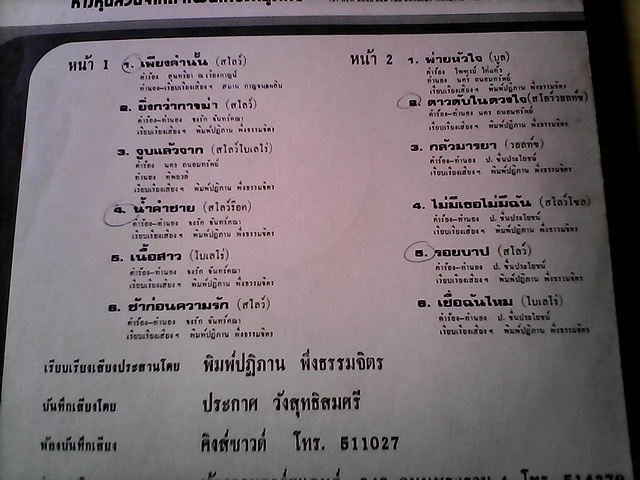 หน้า 1
1. เพียงคำนั้น (สโลว์)
คำร้อง สุนทรียา ณ เวียงกาญจน์
ทำนอง-เรียบเรียงเสียงฯ สมาน กาญจนะผลิน
2. ยิ่งกว่ากางม่า (สโลว์)
คำร้อง-ทำนอง จงรัก จันทร์คณา
เรียบเรียงเสียงฯ พิมพ์ปฏิภาณ พึ่งธรรมจิตร
3. จูบแล้วจาก (สโลว์โบเลโร่)
คำร้อง นคร ถนอมทรัพย์
ทำนอง ทิพยวลี
เรียบเรียงเสียงฯ พิมพ์ปฏิภาณ พึ่งธรรมจิตร
4. น้ำคำชาย (สโลว์ร๊อค)
คำร้อง-ทำนอง จงรัก จันทร์คณา
เรียบเรียงเสียงฯ พิมพ์ปฏิภาณ พึ่งธรรมจิตร
5. เนื้อสาว (โบเลโร่)
คำร้อง-ทำนอง จงรัก จันทร์คณา
เรียบเรียงเสียงฯ พิมพ์ปฏิภาณ พึ่งธรรมจิตร
6. ช้าก่อนความรัก (สโลว์)
คำร้อง-ทำนอง จงรัก จันทร์คณา
เรียบเรียงเสียงฯ พิมพ์ปฏิภาณ พึ่งธรรมจิตร
หน้า 2
1. พ่ายหัวใจ (บูล)
คำร้อง ไพฑูรย์
ทำนอง นคร ถนอมทรัพย์
เรียบเรียงเสียงฯ พิมพ์ปฏิภาณ พึ่งธรรมจิตร
2. ดาวดับในดวงใจ (สโลว์วอลท์ซ)
คำร้อง-ทำนอง นคร ถนอมทรัพย์
เรียบเรียงเสียงฯ พิมพ์ปฏิภาณ พึ่งธรรมจิตร
3. กลัวมารยา (วอลท์ซ)
คำร้อง-ทำนอง ป. ชื่นประโยชน์
เรียบเรียงเสียงฯ พิมพ์ปฏิภาณ พึ่งธรรมจิตร
4. ไม่มีเธอไม่มีฉัน (สโลว์โซล)
คำร้อง-ทำนอง ป. ชื่นประโยชน์
เรียบเรียงเสียงฯ พิมพ์ปฏิภาณ พึ่งธรรมจิตร
5. รอยบาป (สโลว์)
คำร้อง-ทำนอง ป. ชื่นประโยชน์
เรียบเรียงเสียงฯ พิมพ์ปฏิภาณ พึ่งธรรมจิตร
6. เชื่อฉันไหม (โบเลโร่)
คำร้อง-ทำนอง ป. ชื่นประโยชน์
เรียบเรียงเสียงฯ พิมพ์ปฏิภาณ พึ่งธรรมจิตร
เรียบเรียงเสียงประสานโดย พิมพ์ปฏิภาณ พึ่งธรรมจิตร
บันทึกเสียงโดย ประกาศ วังสุทธิสมศรี
ห้องบันทึกเสียง คิงส์ซาวด์ โทร. 511027